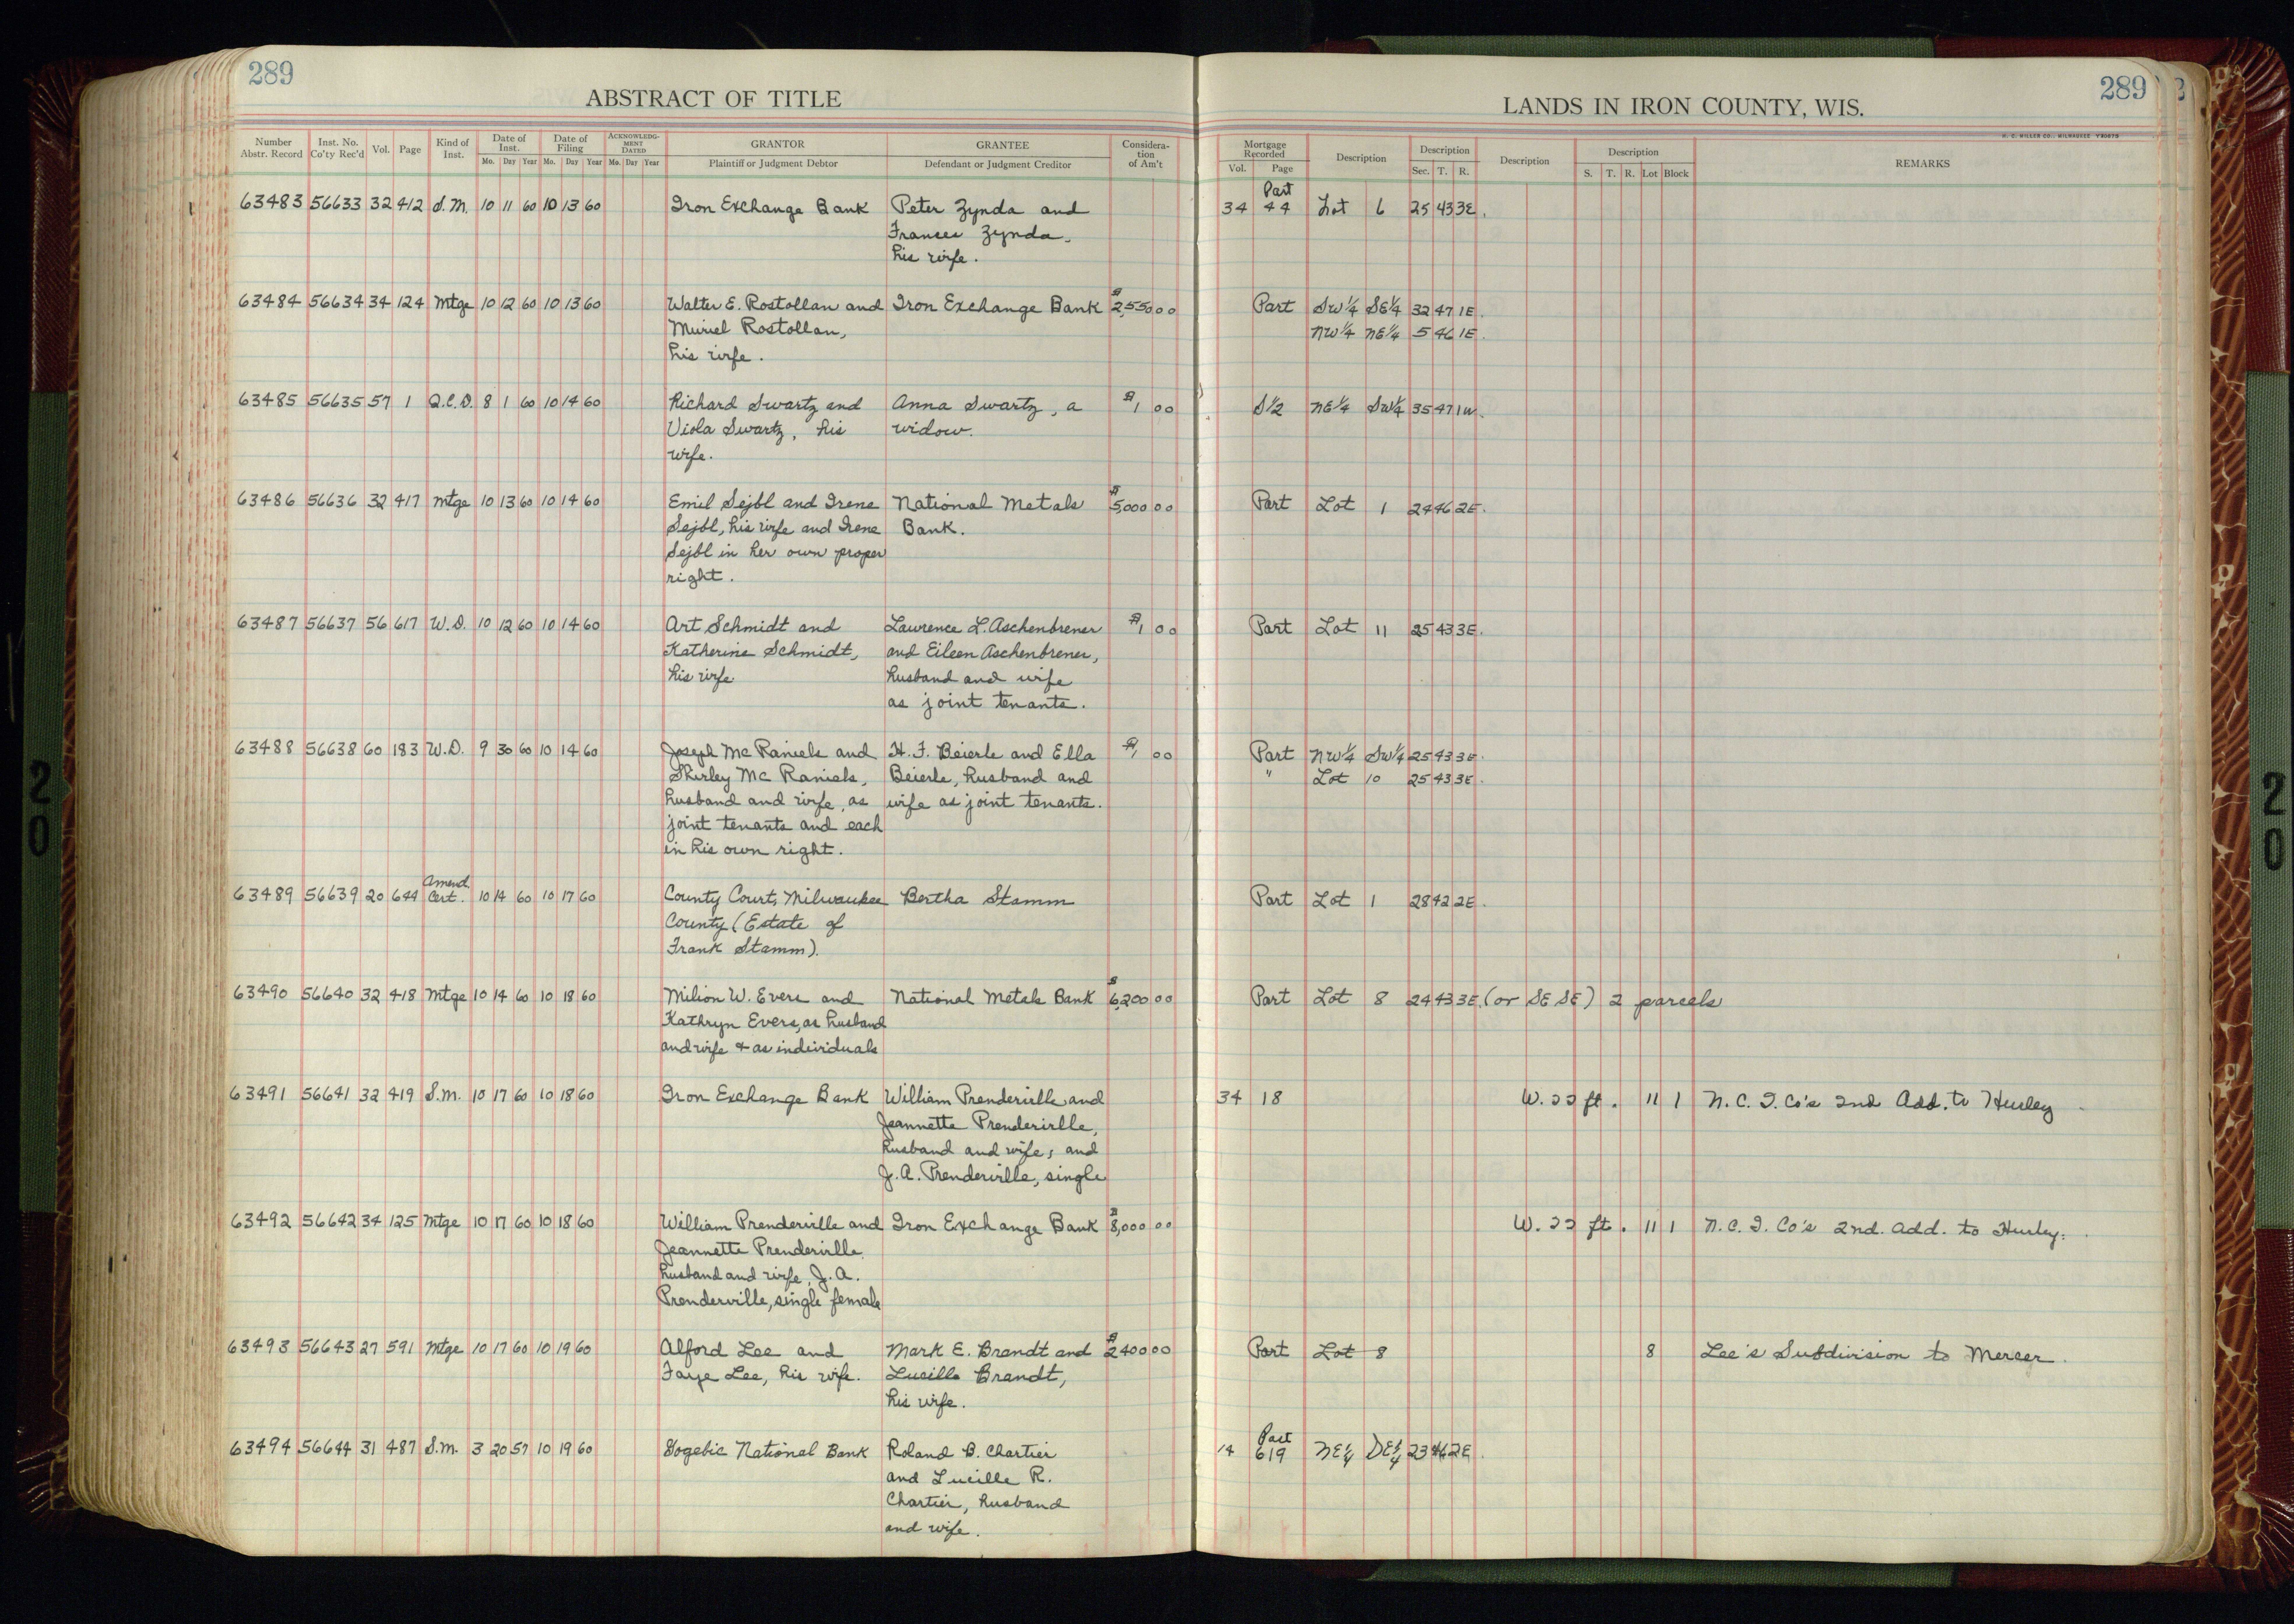 289
ABSTRACT OF TITLE
Number Abstr. Record Inst. No. Co'ty Rec'd Vol. Page Kind of Inst. Date of Inst. Mo. Day Year Date of Filing Mo. Day Year ACKNOWLEDGMENT DATED Mo. Day Year GRANTOR Plaintiff or Judgment Debtor GRANTEE Defendant or Judgment Creditor Consideration of Am't
63483 56633 32 412 S.M. 10 11 60 10 13 60 Iron Exchange Bank Peter Zynda and
Frances Zynda,
his wife.
63484 56634 34 124 Mtge 10 12 60 10 13 60 Walter E. Rostollan and Iron Exchange Bank $2,550 00
Muriel Rostollan,
his wife.
63485 56635 57 1 Q.C.D. 8 1 60 10 14 60 Richard Swartz and Anna Swartz, a $1 00
Viola Swartz, his widow.
wife.
63486 56636 32 417 Mtge 10 13 60 10 14 60 Emil Sejbl and Irene National Metals $5,000 00
Sejbl, his wife and Irene Bank.
Sejbl in her own proper
right.
63487 56637 56 617 W.D. 10 12 60 10 14 60 Art Schmidt and Lawrence L. Aschenbrener $1 00
Katherine Schmidt, and Eileen Aschenbrener,
his wife husband and wife
as joint tenants.
63488 56638 60 183 W.D. 9 30 60 10 14 60 Joseph Mc Raniels and H. F. Beierle and Ella $1 00
Shirley Mc Raniels, Beierle, husband and
husband and wife, as wife as joint tenants.
joint tenants and each
in his own right.
63489 56639 20 644 Amend. Cert. 10 14 60 10 17 60 County Court, Milwaukee Bertha Stamm
County (Estate of
Frank Stamm).
63490 56640 32 418 Mtge 10 14 60 10 18 60 Milion W. Evers and National Metals Bank $6,200 00
Kathryn Evers, as husband
and wife + as individuals
63491 56641 32 419 S.M. 10 17 60 10 18 60 Iron Exchange Bank William Prenderville and
Jeannette Prenderville,
husband and wife, and
J. A. Prenderville, single
63492 56642 34 125 Mtge 10 17 60 10 18 60 William Prenderville and Iron Exchange Bank $8,000 00
Jeannette Prenderville,
husband and wife, J. A.
Prenderville, single female
63493 56643 27 591 Mtge 10 17 60 10 19 60 Alford Lee and Mark E. Brandt and $2400 00
Faye Lee, his wife. Lucille Brandt,
his wife.
63494 56644 31 487 S.M. 3 20 57 10 19 60 Gogebic National Bank Roland B. Chartier
and Lucille R.
Chartier, husband
and wife.
289
LANDS IN IRON COUNTY, WIS.
H. C. MILLER CO., MILWAUKEE
Mortgage Recorded Vol. Page Description Description Sec. T. R. Description Description S. T. R. Lot Block REMARKS
Part
34 44 Lot 6 25 43 3E.
Part SW¼ SE¼ 32 47 1E.
NW¼ NE¼ 5 46 1E.
S½ NE¼ SW¼ 35 47 1W.
Part Lot 1 24 46 2E.
Part Lot 11 25 43 3E.
Part NW¼ SW¼ 25 43 3E.
" Lot 10 25 43 3E.
Part Lot 1 28 42 2E.
Part Lot 8 24 43 3E. (or SE SE) 2 parcels
34 18 W. 22 ft. 11 1 N.C.I. Co's 2nd Add. to Hurley
W. 22 ft. 11 1 N.C.I. Co's 2nd. Add. to Hurley.
Part Lot 8 8 Lee's Subdivision to Mercer.
Part
14 619 NE¼ SE¼ 23 46 2E.
20
20